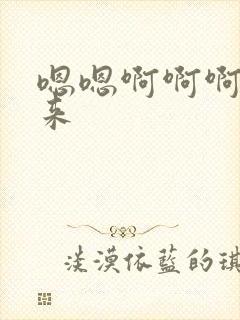 嗯嗯啊啊啊
来
淡漠依蓝的琪